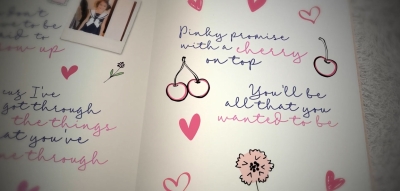 don't
have to be
afraid to
grow up
cus I've
got through
the things
that you've
me through
Pinky promise
with a cherry
on top
You'll be
all that you
wanted to be